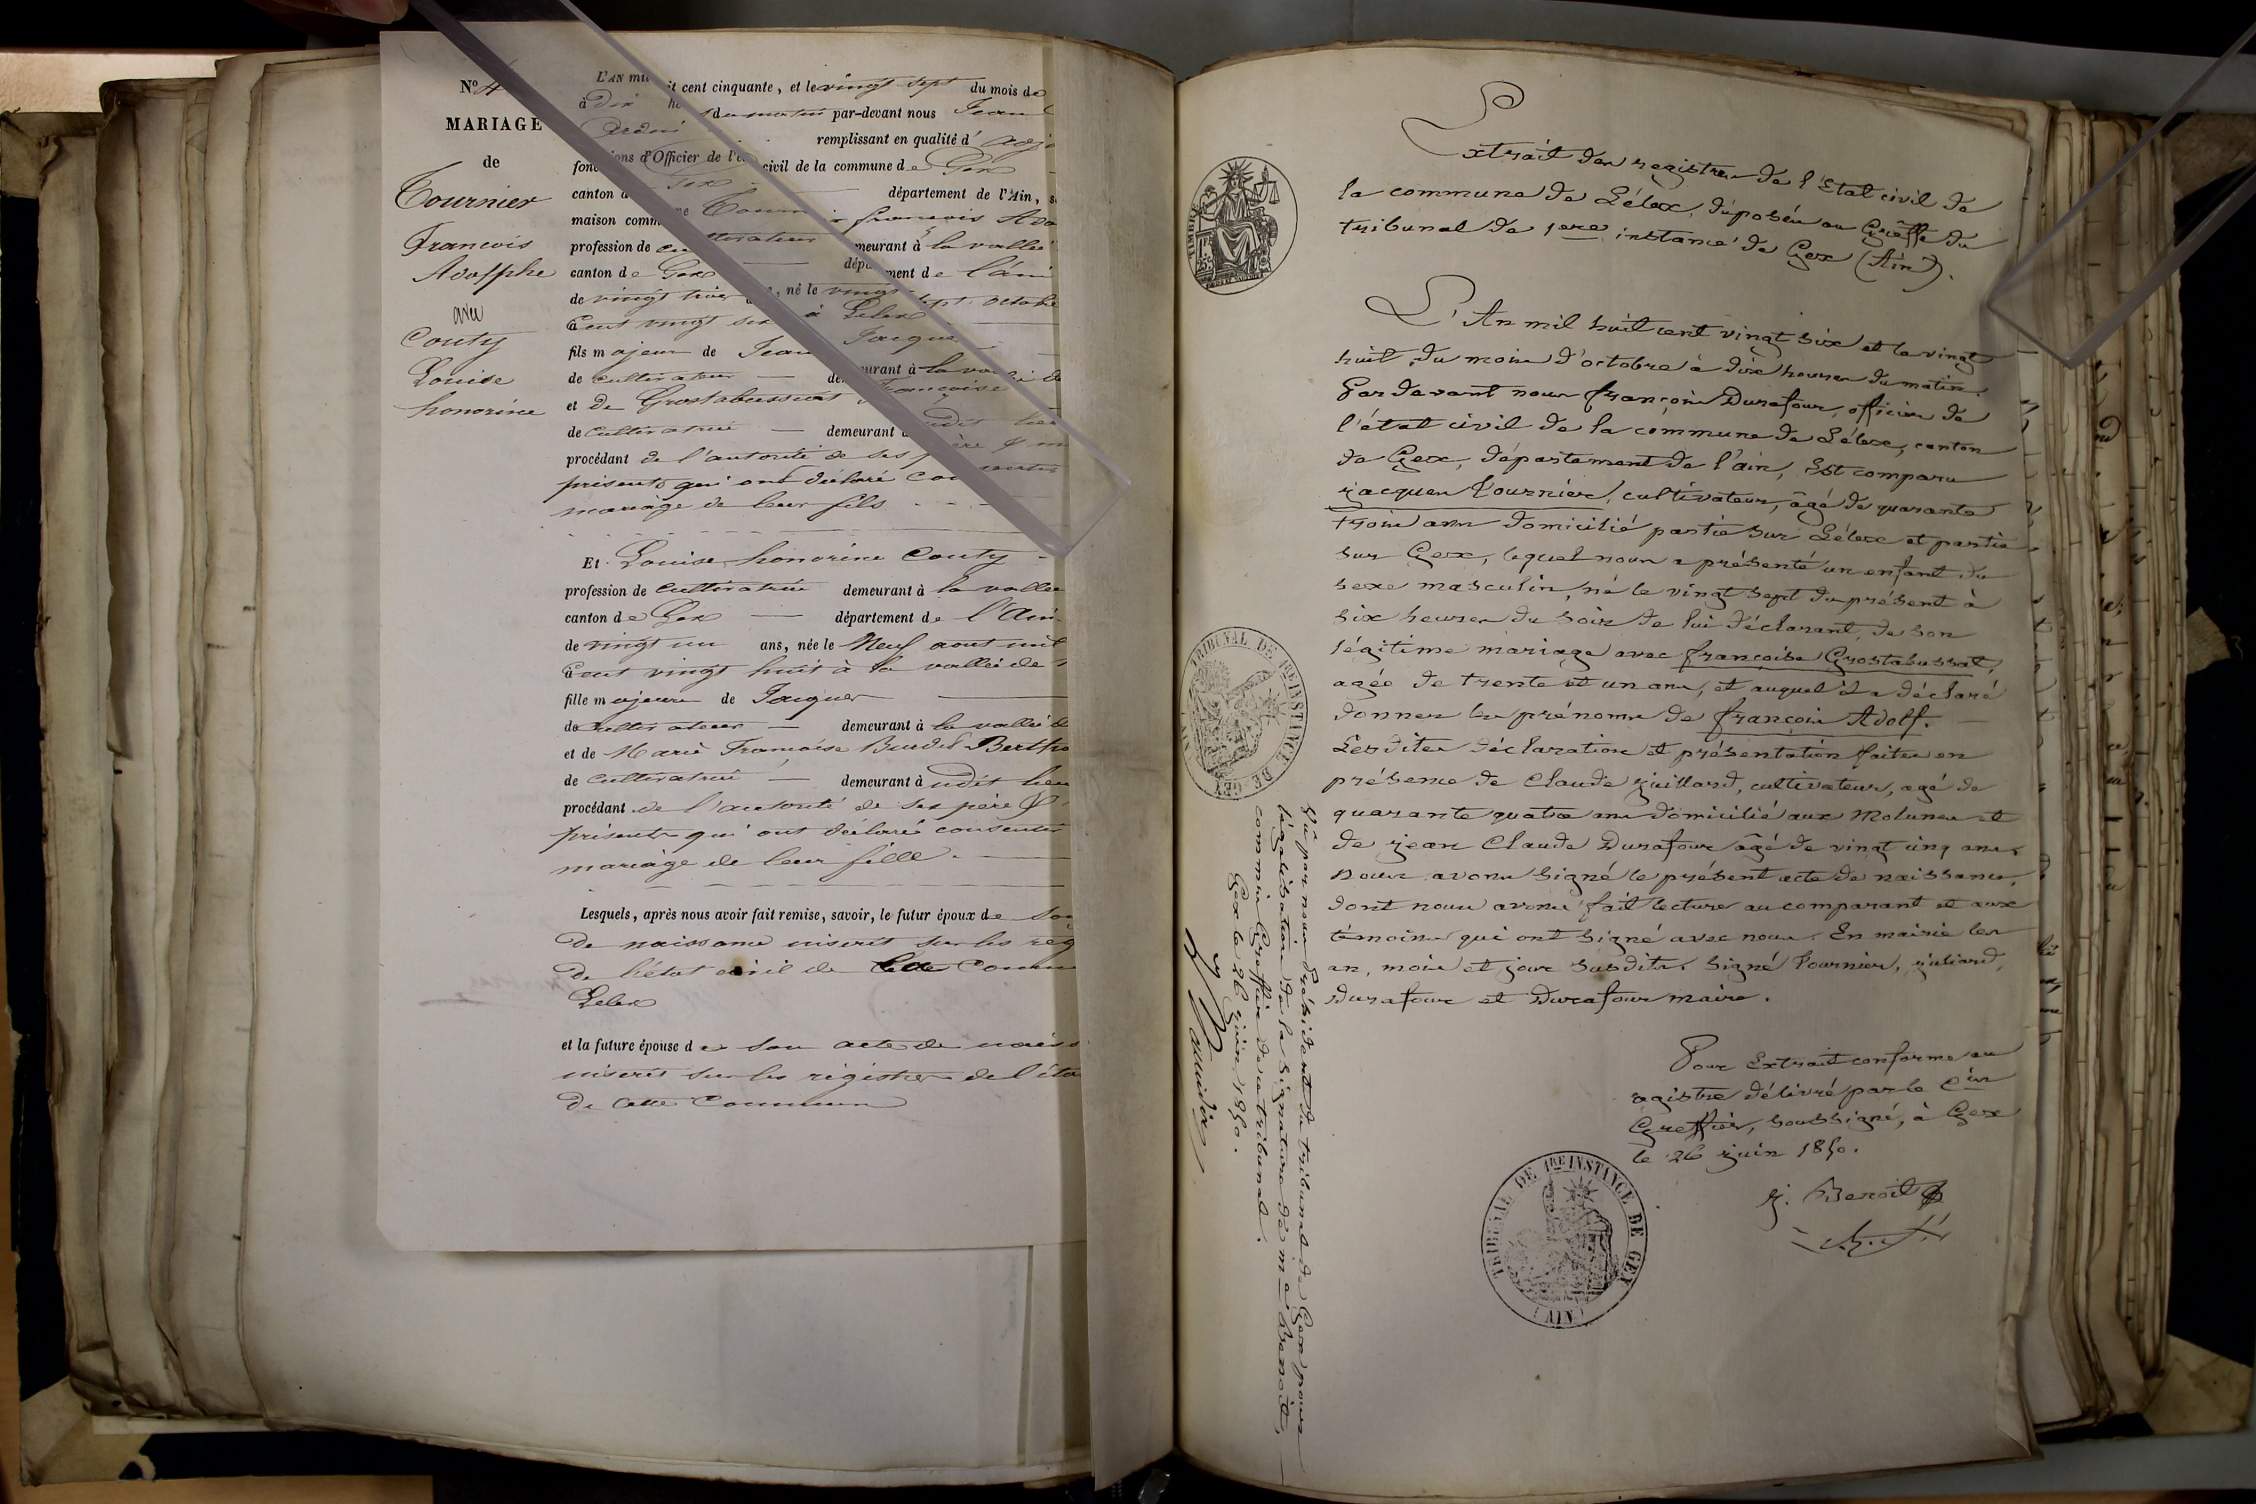 N° 4
MARIAGE
de
Tournier
François
Adolphe
avec
Couty
Louise
honorine
L'AN mil it cent cinquante, et le vingt sept du mois de
à dix he s du matin par-devant nous Jean
remplissant en qualité d' adj
fonc ions d'Officier de l'é civil de la commune de Gex
canton d Gex département de l'Ain, s
maison comm ne Tourn r françois Ado
profession de cultivateur meurant à la vallée
canton de Gex dépa ment de l'ain
de vingt trois a s, né le vingt sept octobre
cent vingt six à Lelex
fils majeur de Jean Jacque
de cultivateur de urant à la vallée de
et de Grostabussiat Françoise
de cultivatrice demeurant a udit lieu
procédant de l'autorité de ses père & m
présents qui ont déclaré con sentir
mariage de leur fils
Et Louise honorine Couty
profession de cultivatrice demeurant à la vallée
canton de Gex département de l'Ain
de vingt un ans, née le Neuf aout mil
cent vingt huit à la vallée de
fille majeure de Jacques
de cultivateur demeurant à la vallée de
et de Marie Françoise Burdet Bertho
de cultivatrice demeurant à udit lieu
procédant de l'autorité de ses père &
présents qui ont déclaré consentir
mariage de leur fille
Lesquels, après nous avoir fait remise, savoir, le futur époux de son
de naissance inscrit sur les reg
de l'état civil de Cette Comm
Lelex
et la future épouse de son acte de naiss
inscrit sur les registres de l'éta
de cette Commune
TIMBRE
25 C
Extrait des registres de l'Etat civil de
la commune de Lélex, déposés au Greffe du
tribunal de 1ere instance de Gex (Ain).
L'An mil huit cent vingt six et le vingt
huit du mois d'octobre à dix heures du matin.
Pardevant nous françois Durafour, officier de
l'état civil de la commune de Lélex, canton
de Gex, département de l'ain, Est comparu
jacques Tournier, cultivateur, âgé de quarante
trois ans domicilié partie sur Lélex et partie
sur Gex, lequel nous a présenté un enfant du
sexe masculin, né le vingt sept du présent à
six heures du soir de lui déclarant, de son
légitime mariage avec françoise Grostabussat,
agée de trente et un ans, et auquel il a déclaré
donner les prénoms de françois Adolf.
Lesdites déclaration et présentation faites en
présence de Claude juillard, cultivateur, agé de
quarante quatre ans domicilié aux Molunes et
de jean Claude Durafour âgé de vingt cinq ans.
Nous avons signé le présent acte de naissance,
dont nous avons fait lecture au comparant et aux
témoins qui ont signé avec nous. En mairie les
an, mois et jour susdits. Signé Tournier, juliard,
Durafour et Durafour maire.
Pour Extrait conforme au
registre délivré par le Cis
Greffier, soussigné, à Gex
le 26 juin 1850.
j. Benoit
TRIBUNAL DE 1RE INSTANCE DE GEX
(AIN)
TRIBUNAL DE 1RE INSTANCE DE GEX
(AIN)
Vû par nous Président du tribunal de Gex pour
légalisation de la signature de me Benoit,
commis Greffier de ce tribunal.
Gex le 26 juin 1850.